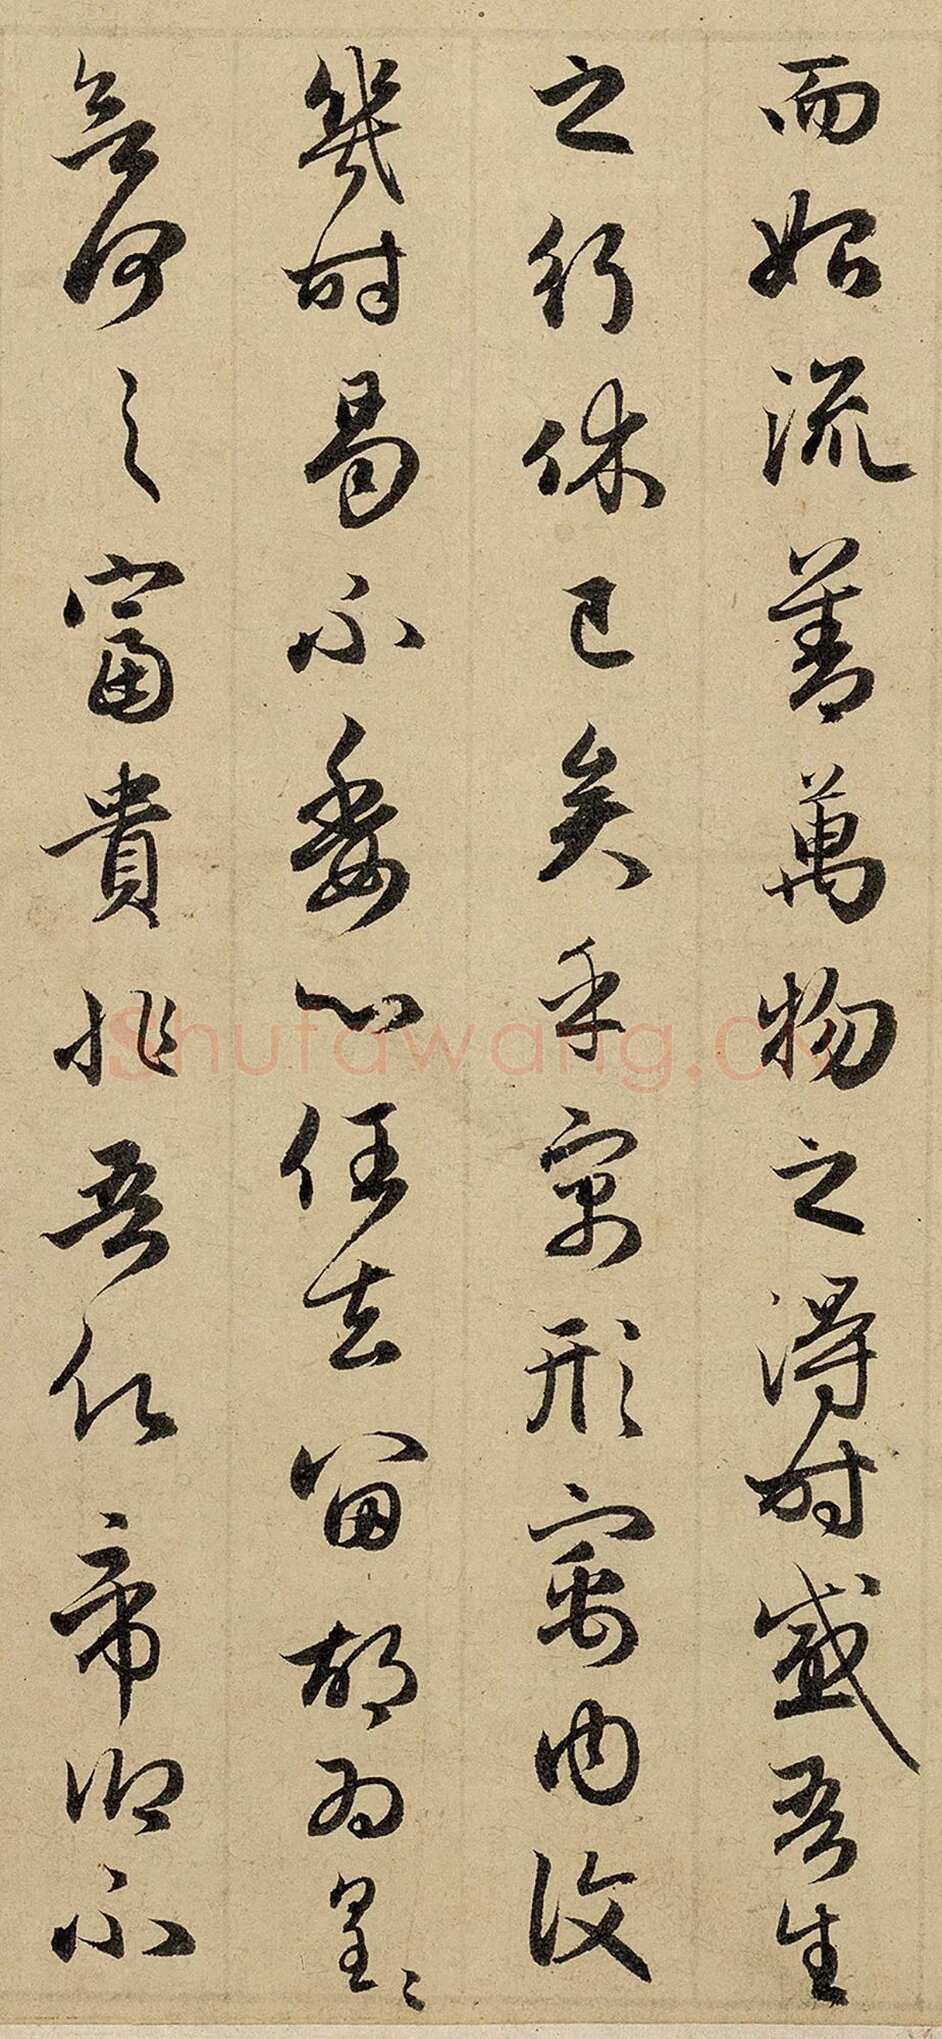 而始流善萬物之得時感吾生
之行休已矣乎寓形寓内復
幾時曷不委心任去留胡為皇〻
欲何之富貴非吾願帝鄉不
shufawang.cn